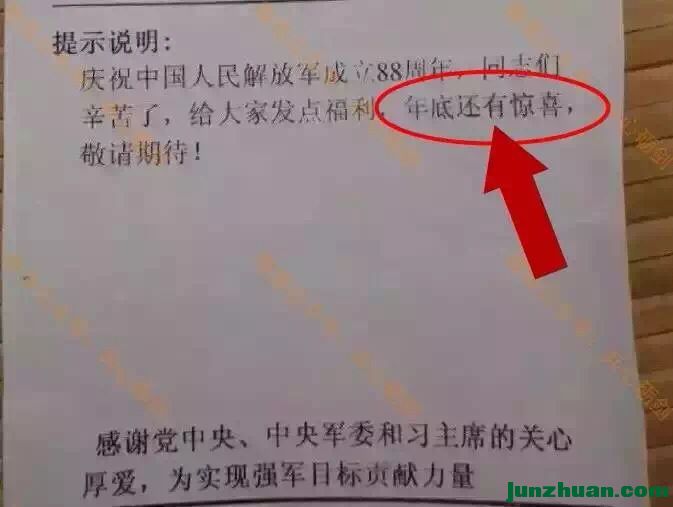 提示说明:
庆祝中国人民解放军成立88周年，同志们
辛苦了，给大家发点福利，年底还有惊喜，
敬请期待！
感谢党中央、中央军委和习主席的关心
厚爱，为实现强军目标贡献力量
junzhuan.com